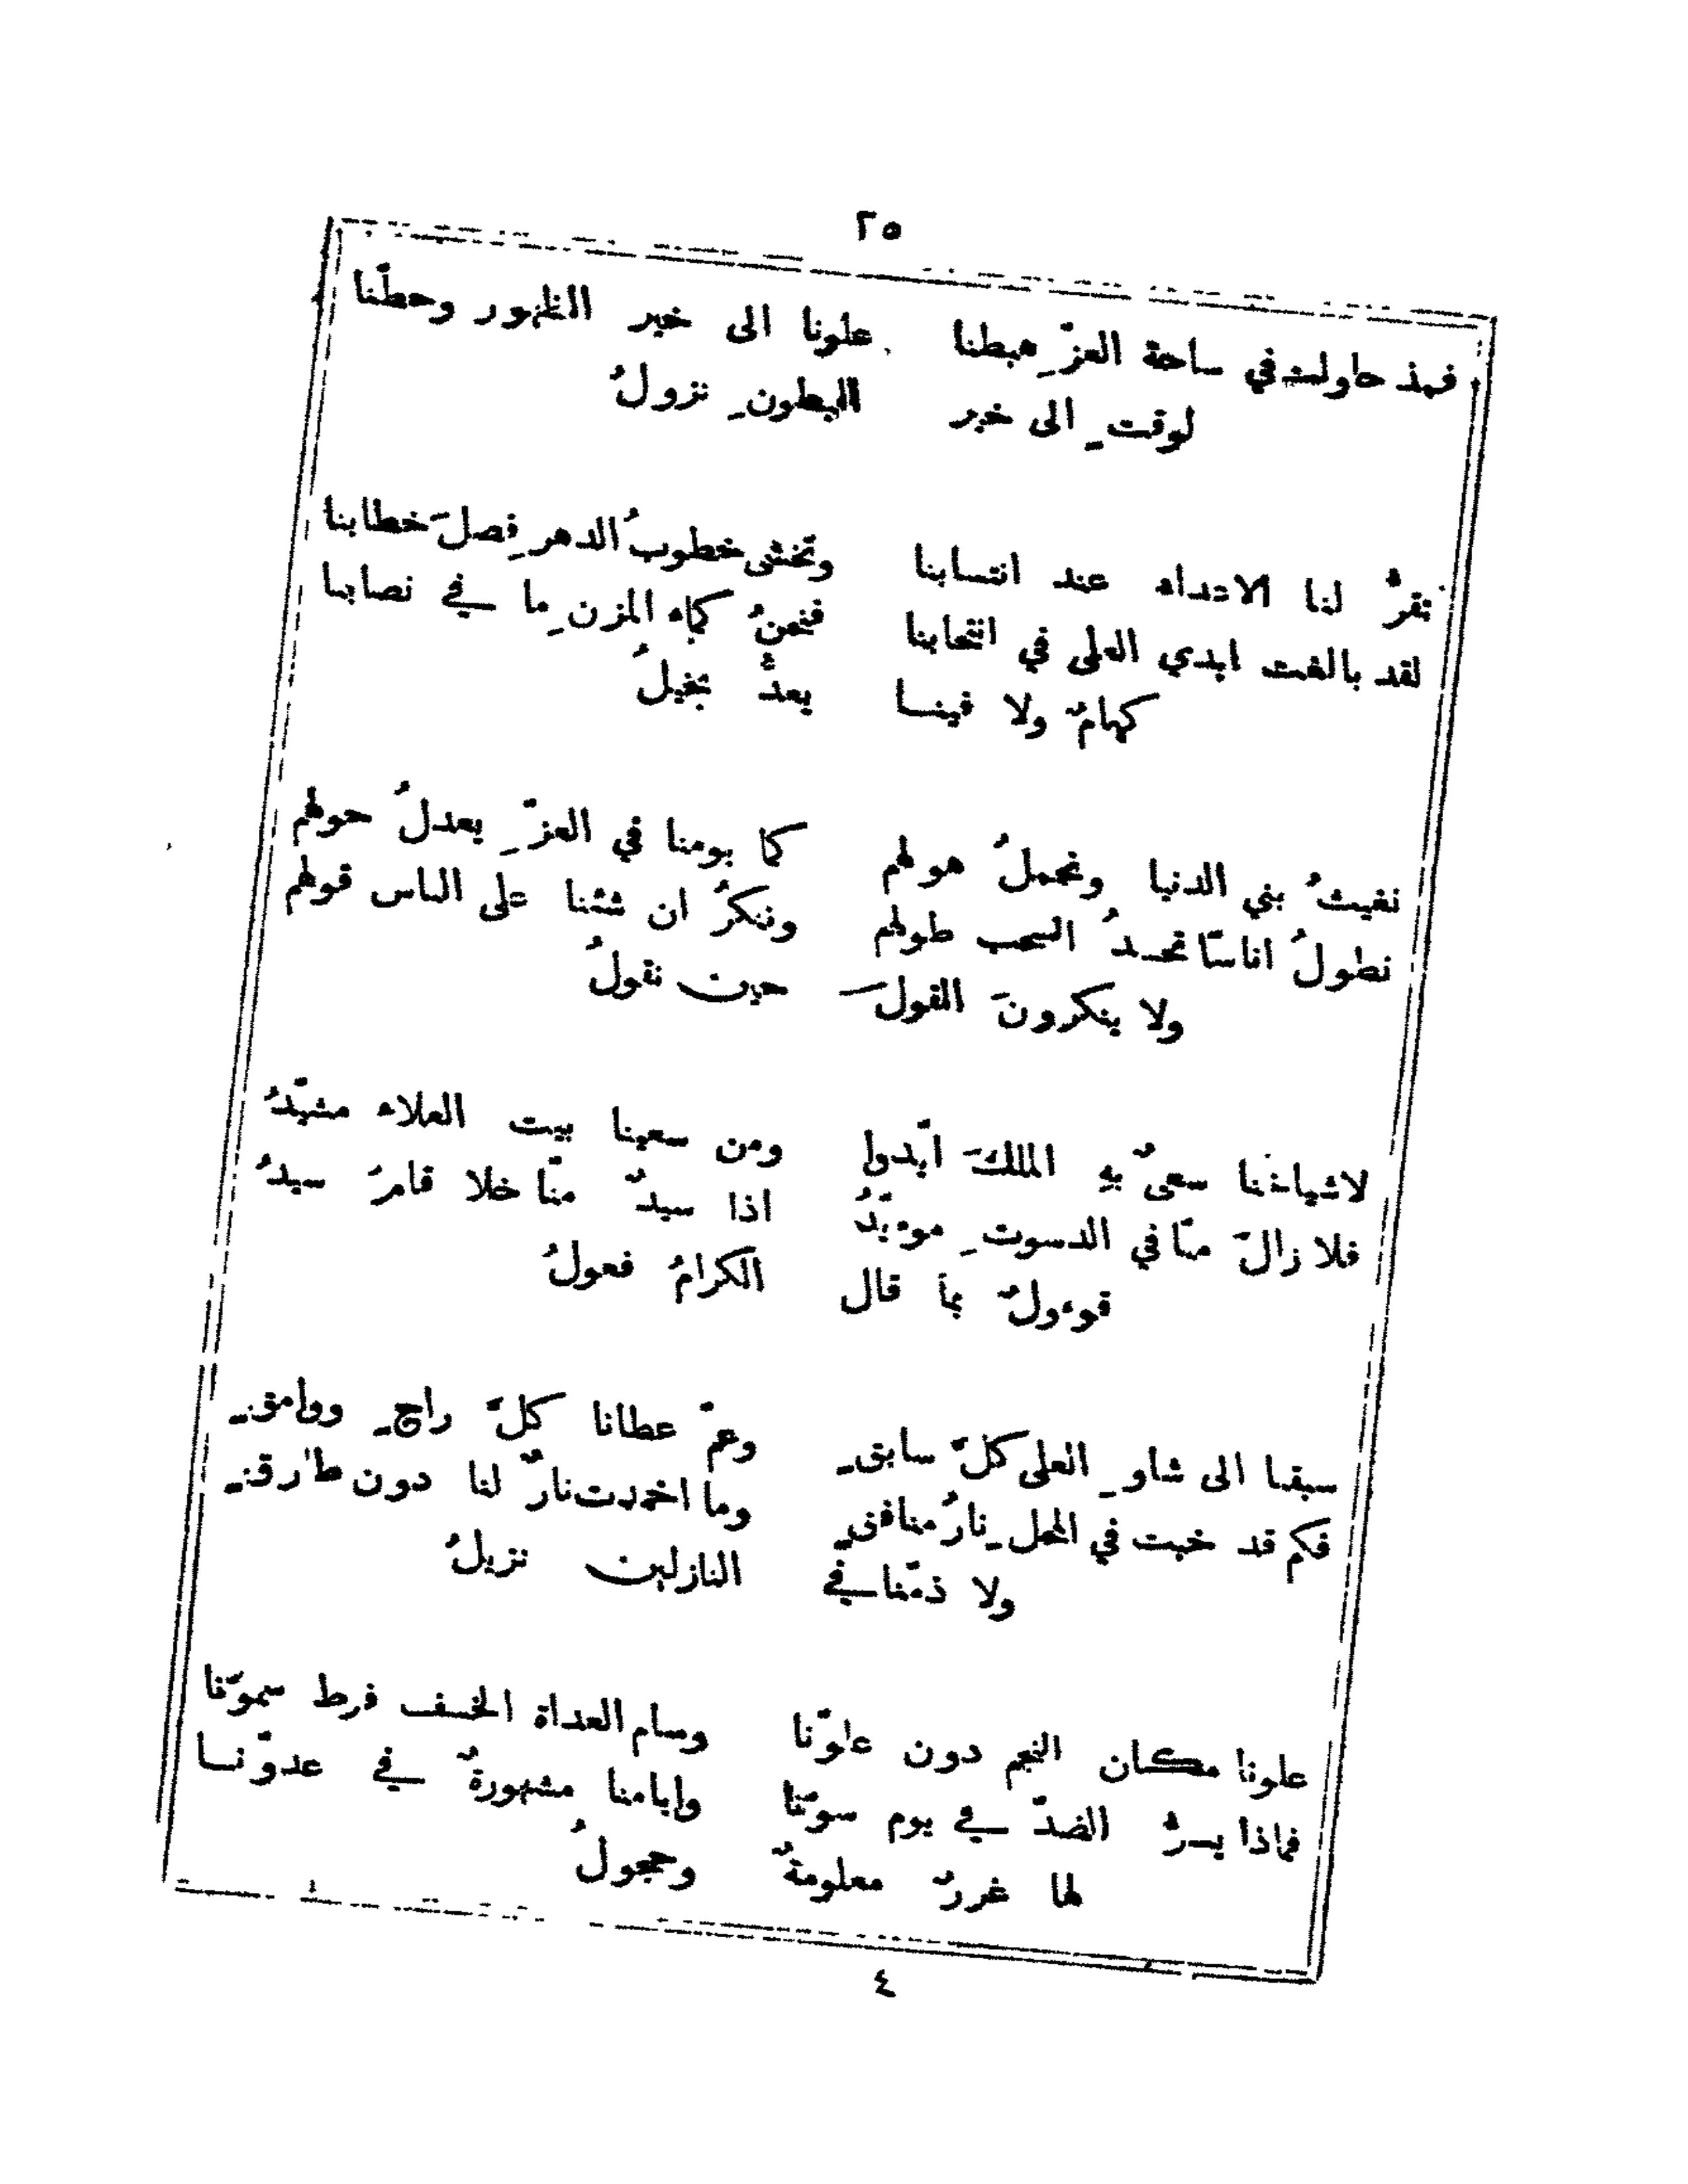 ٢٥
فمذ حاولت في ساحة العزِّ هبطنا علونا الى خير الظهور وحطّنا
لوقتِ الى خير البطونِ نزولُ
تقرُّ لنا الاعداء عند انتسابنا وتخشى خطوبُ الدهرِ فصلَ خطابنا
لقد بالغت ايدي العلى في انتخابنا فنحنُ كماء المزنِ ما في نصابنا
كهامٌ ولا فينا يعدُّ بخيلُ
نغيثُ بني الدنيا ونحملُ هولهم كما يومنا في العزِّ يعدلُ حولهم
نطولُ اناسًا تحسدُ السحب طولهم وننكرُ ان شئنا على الناس قولهم
ولا ينكرونَ القولَ حين نقولُ
لاشياخنا سعيٌ بهِ الملكَ ايّدوا ومن سعينا بيت العلاء مشيّدُ
فلا زالَ منّا في الدسوتِ موءيّدُ اذا سيدٌ منّا خلا قامَ سيدُ
قوءولٌ بما قال الكرامُ فعولُ
سبقنا الى شاوِ العلى كلَّ سابقِ وعمَّ عطانا كلَّ راجٍ ووامقِ
فكم قد خبت في المحلِ نارُ منافقِ وما اخمدت نارٌ لنا دون طارقِ
ولا ذمّنا في النازلين نزيلُ
علونا مكان النجم دون علوّنا وسام العداة الخسف فرط سموّنا
فماذا يسرُّ الضدّ في يوم سوّنا وايامنا مشهورةٌ في عدوّنا
لها غررٌ معلومةٌ وحجولُ
٤